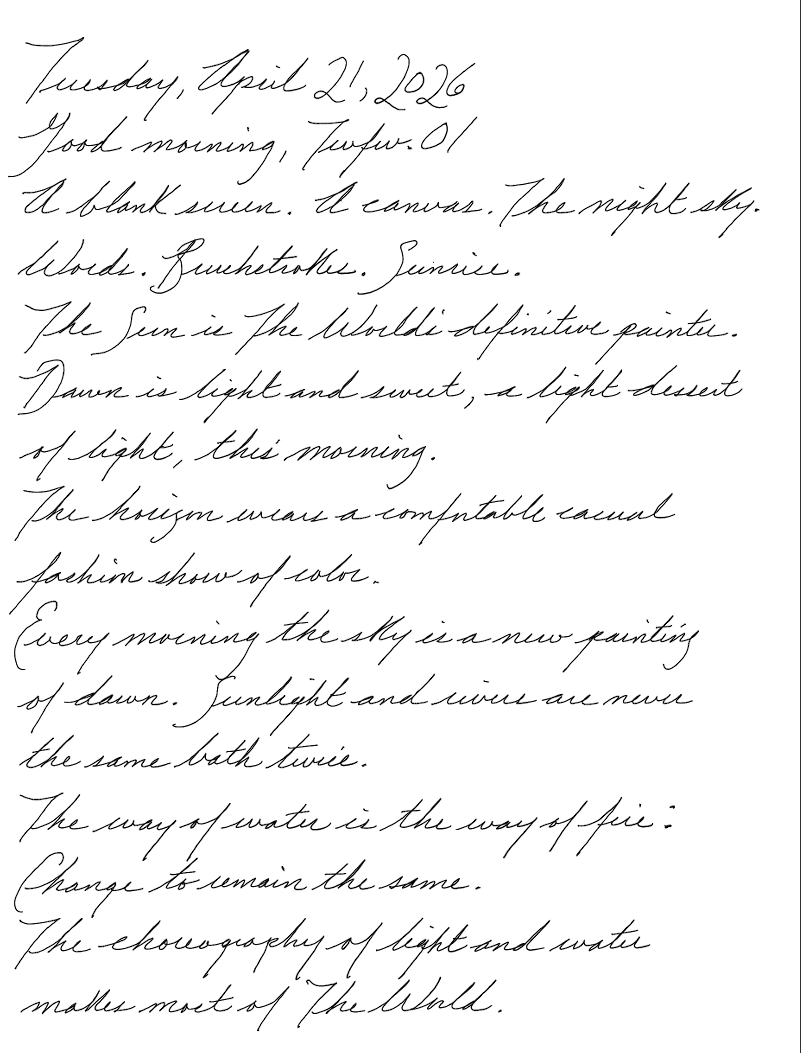 Tuesday, April 21, 2026
Good morning, Twfw.01
A blank screen. A canvas. The night sky.
Words. Brushstrokes. Sunrise.
The Sun is The World's definitive painter.
Dawn is light and sweet, a light dessert
of light, this morning.
The horizon wears a comfortable casual
fashion show of color.
Every morning the sky is a new painting
of dawn. Sunlight and rivers are never
the same bath twice.
The way of water is the way of fire:
Change to remain the same.
The choreography of light and water
makes most of The World.